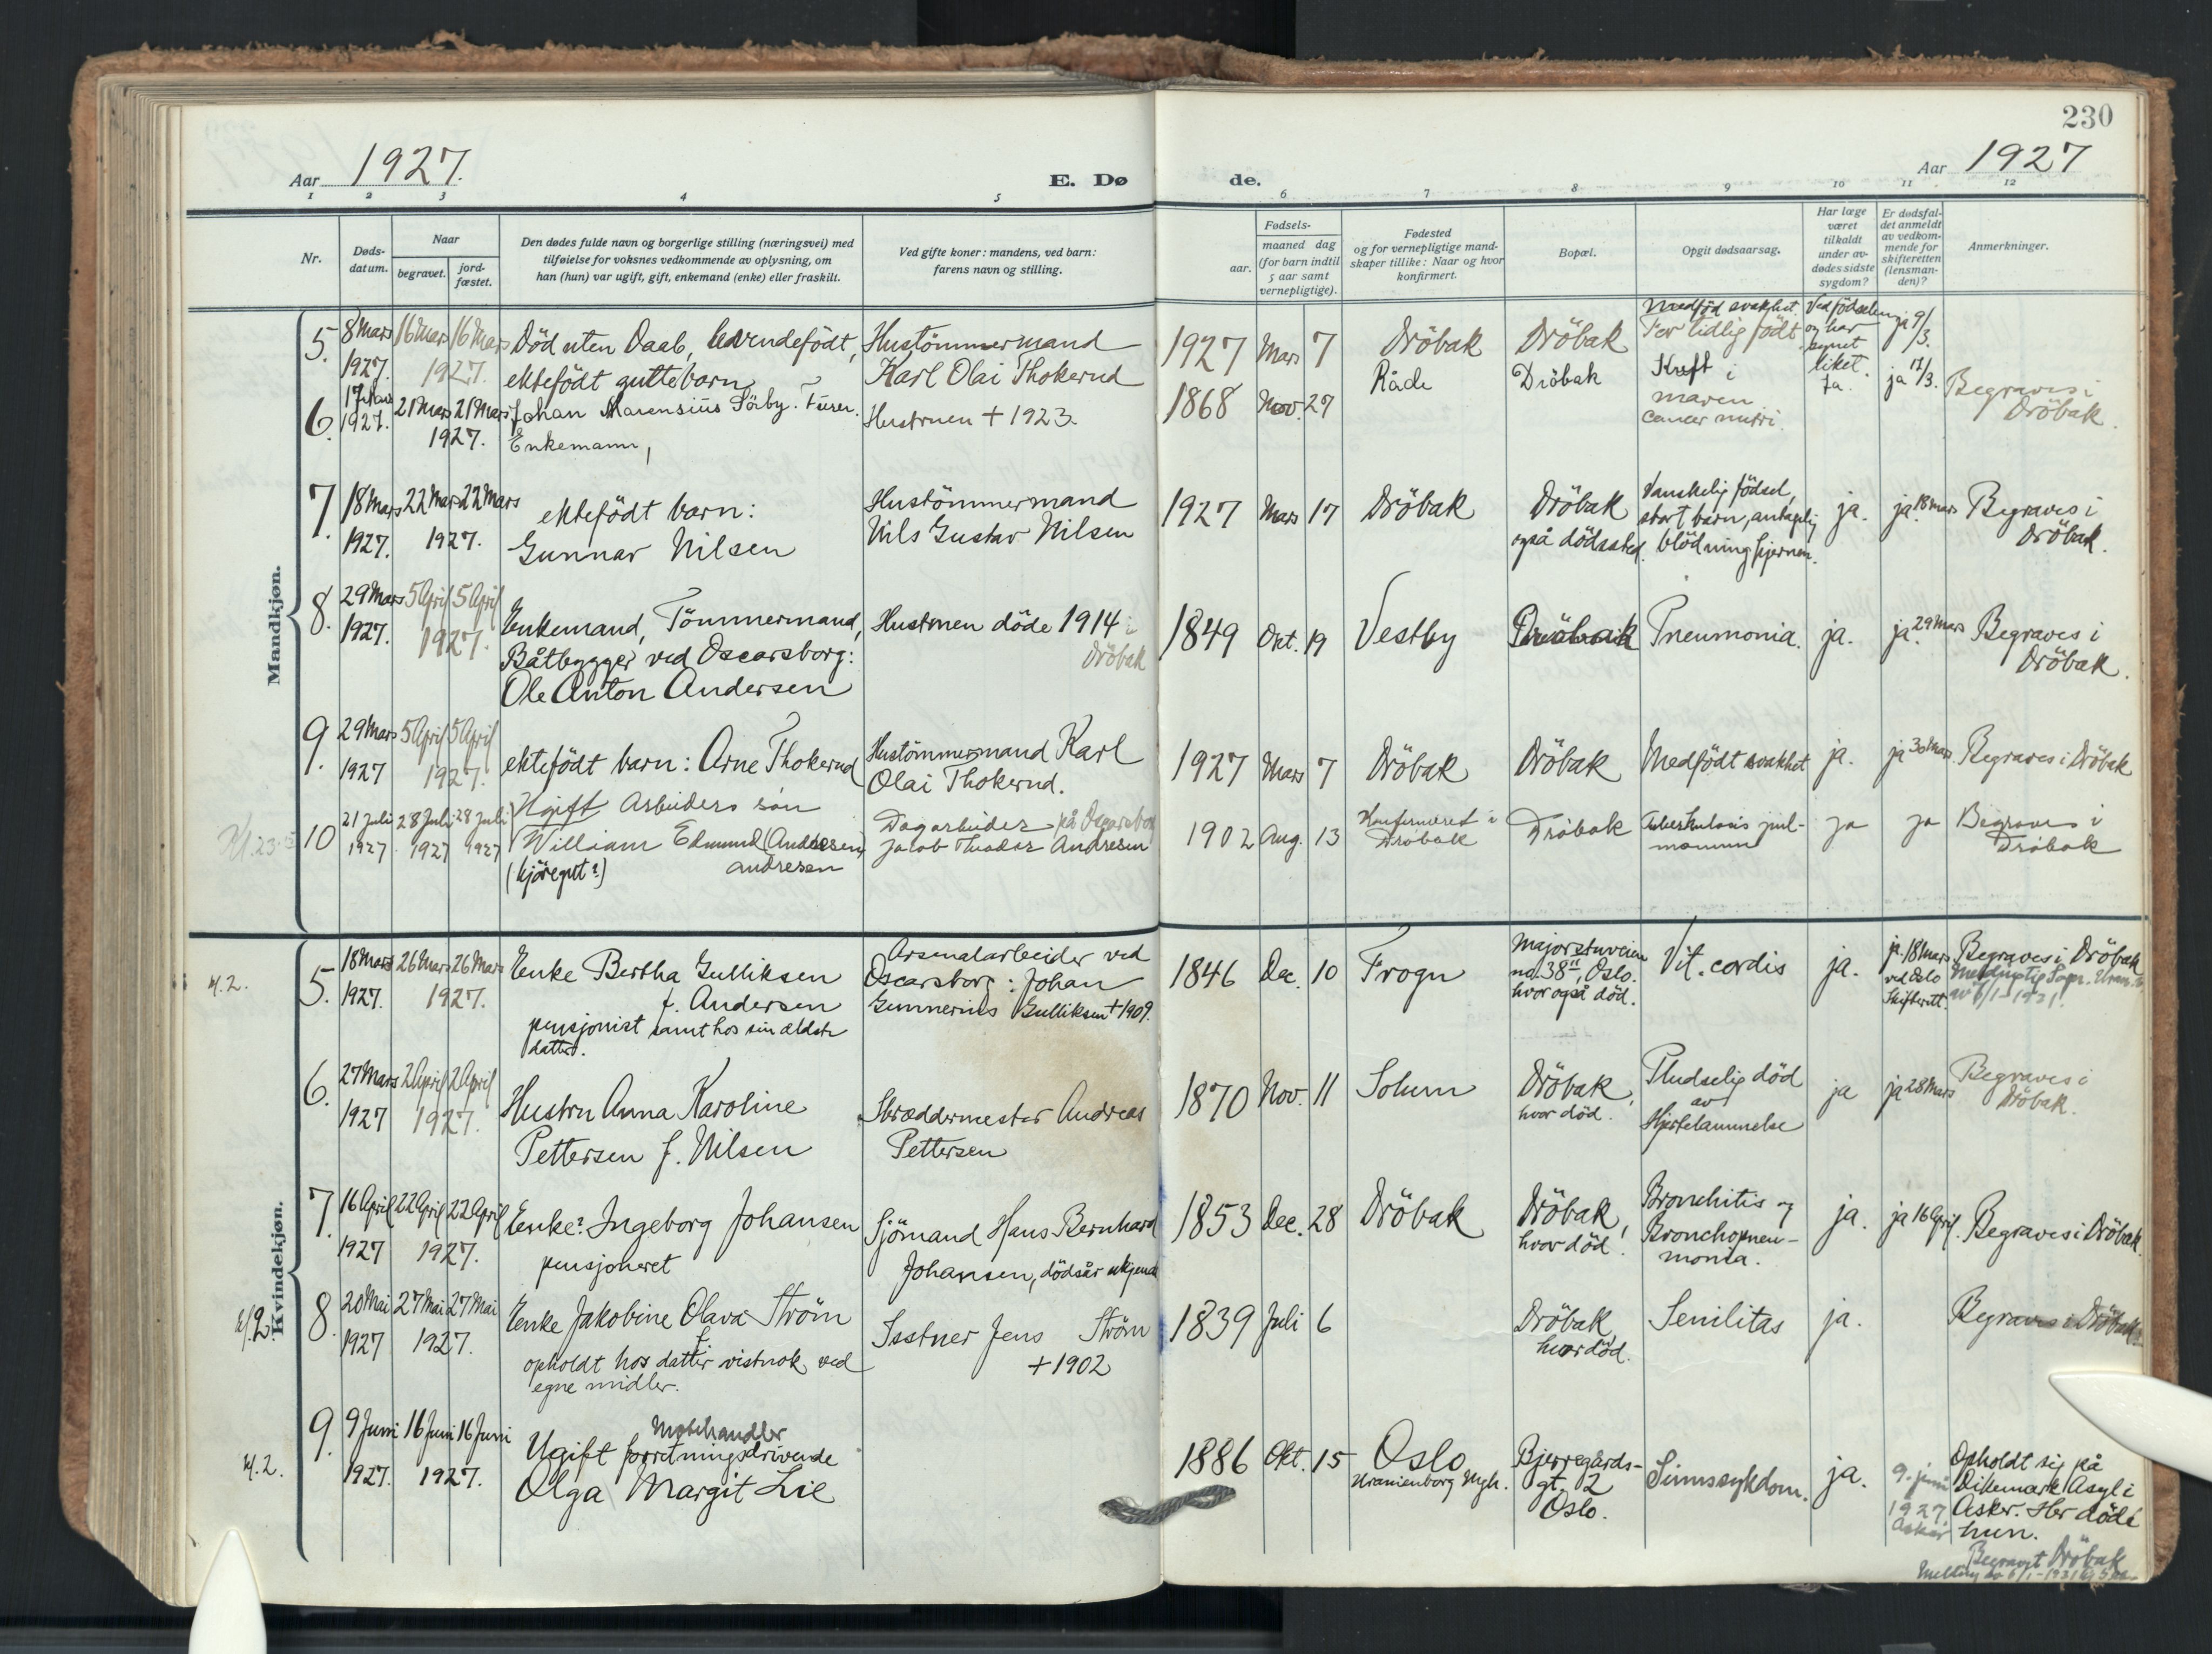 230
Aar 1927.
E. Dø
de.
Aar 1927
1 2 3 4 5 6 7 8 9 10 11 12
Nr.
Døds-
datum.
Naar
begravet.
jord-
fæstet.
Den dødes fulde navn og borgerlige stilling (næringsvei) med
tilføielse for voksnes vedkommende av oplysning, om
han (hun) var ugift, gift, enkemand (enke) eller fraskilt.
Ved gifte koner: mandens, ved barn:
farens navn og stilling.
Fødsels-
aar.
maaned dag
(for barn indtil
5 aar samt
vernepligtige).
Fødested
og for vernepligtige mand-
skaper tillike: Naar og hvor
konfirmert.
Bopæl.
Opgit dødsaarsag.
Har læge
været
tilkaldt
under av-
dødes sidste
sygdom?
Er dødsfal-
det anmeldt
av vedkom-
mende for
skifteretten
(lensman-
den)?
Anmerkninger.
Mandkjøn.
5. 8 Mars 1927. 16 Mars 16 Mars 1927.
Död uten Daab, levendefödt,
ektefödt guttebarn
Hustömmermand
Karl Olai Thokerud
1927 Mars 7 Dröbak Dröbak
Medfød svakhet.
For tidlig födt
Ved födselen
og har
synet
liket.
ja 9/3.
6. 17 Mars 1927. 21 Mars 21 Mars 1927.
Johan Marensius Sörby. Fürer.
Enkemann,
Hustruen + 1923.
1868 Nov. 27 Råde Dröbak
Kreft i
maven
cancer
Ja. ja 17/3.
Begraves i
Dröbak.
7. 18 Mars 1927. 22 Mars 22 Mars 1927.
ektefödt barn:
Gunnar Nilsen
Hustömmermand
Nils Gustav Nilsen
1927 Mars 17 Dröbak
Dröbak
også dödssted.
Vanskelig födsel,
stort barn, antagelig
blödning hjernen.
ja. ja. 18 Mars
Begraves i
Dröbak.
8. 29 Mars 1927. 5 April 5 April 1927.
Enkemand, Tömmermand,
Båtbygger ved Oscarsborg:
Ole Anton Andersen
Hustruen döde 1914 i
Dröbak
1849 Okt. 19 Vestby Dröbak Pneumonia. ja. ja. 29 Mars
Begraves i
Dröbak.
9. 29 Mars 1927 5 April 5 April 1927.
ektefödt barn: Arne Thokerud
Hustömmermand Karl
Olai Thokerud.
1927 Mars 7 Dröbak Dröbak Medfödt svakhet ja. ja 30 Mars. Begraves i Dröbak
10 21 Juli 1927 28 Juli 1927 28 Juli 1927
Ugift Arbeiders sön
William Edmund (Andresen)
Andresen
(kjöregut?)
Dagarbeider på Oscarsborg
Jacob Theodor Andresen
1902 Aug. 13
Konfirmeret i
Dröbak
Dröbak
Tuberkulosis pul-
monum
ja ja
Begraves i
Dröbak
Kvindekjøn.
5. 18 Mars 1927. 26 Mars 26 Mars 1927.
Enke Bertha Gulliksen
f. Andersen
pensjonist samt hos sin ældste
datter.
Arsenalarbeider ved
Oscarsborg: Johan
Gunnerius Gulliksen + 1909.
1846 Dec. 10 Frogn
Majorstuveien
no. 38II, Oslo.
hvor også död.
Vit. cordis ja.
ja. 18 Mars
ved Oslo
Skifterett.
Begraves i Dröbak
av 6/1-1921.
6. 27 Mars 1927 2 April 2 April 1927.
Hustru Anna Karoline
Pettersen f. Nilsen
Skræddermester Andreas
Pettersen
1870 Nov. 11 Solum
Dröbak,
hvor död.
Pludselig död
av
Hjertelammelse
ja ja 28 Mars
Begraves i
Dröbak.
7. 16 April 1927 22 April 22 April 1927.
Enke? Ingeborg Johansen
pensjoneret
Sjömand Hans Bernhard
Johansen, dödsår ukjendt
1853 Dec. 28 Dröbak
Dröbak,
hvor död.
Bronchitis og
Bronchopneu-
monia.
ja. ja 16 April. Begraves i Dröbak.
8. 20 Mai 1927 27 Mai 27 Mai 1927.
Enke Jakobine Olava Ström
f.
opholdt hos datter vistnok ved
egne midler.
Jens Ström
+ 1902
1839 Juli 6
Dröbak,
hvor död.
Senilitas ja. Begraves i Dröbak.
9. 9 Juni 1927. 16 Juni 16 Juni 1927.
Motehandler
Ugift forretningsdrivende
Olga Margit Lie
1886 Okt. 15
Oslo
Uranienborg Mgh.
Bjerregårds-
gt. 2
Oslo.
Sinnssykdom. ja.
9. juni
1927
Asker
Opholdt sig på
Dikemark Asyl i
Asker. Her döde
hun.
Begravet Dröbak